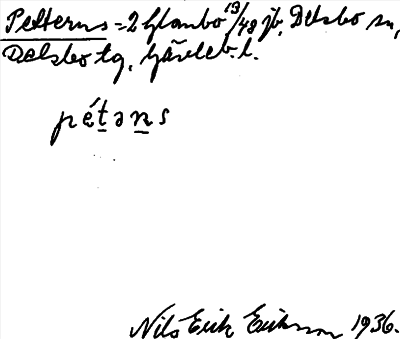 Petterns = 2 Glombo 13/48 jb, Delsbo sn,
Delsbo tg, Gävleb. l.
pét̲ən̲s
Nils Erik Erikson 1936.